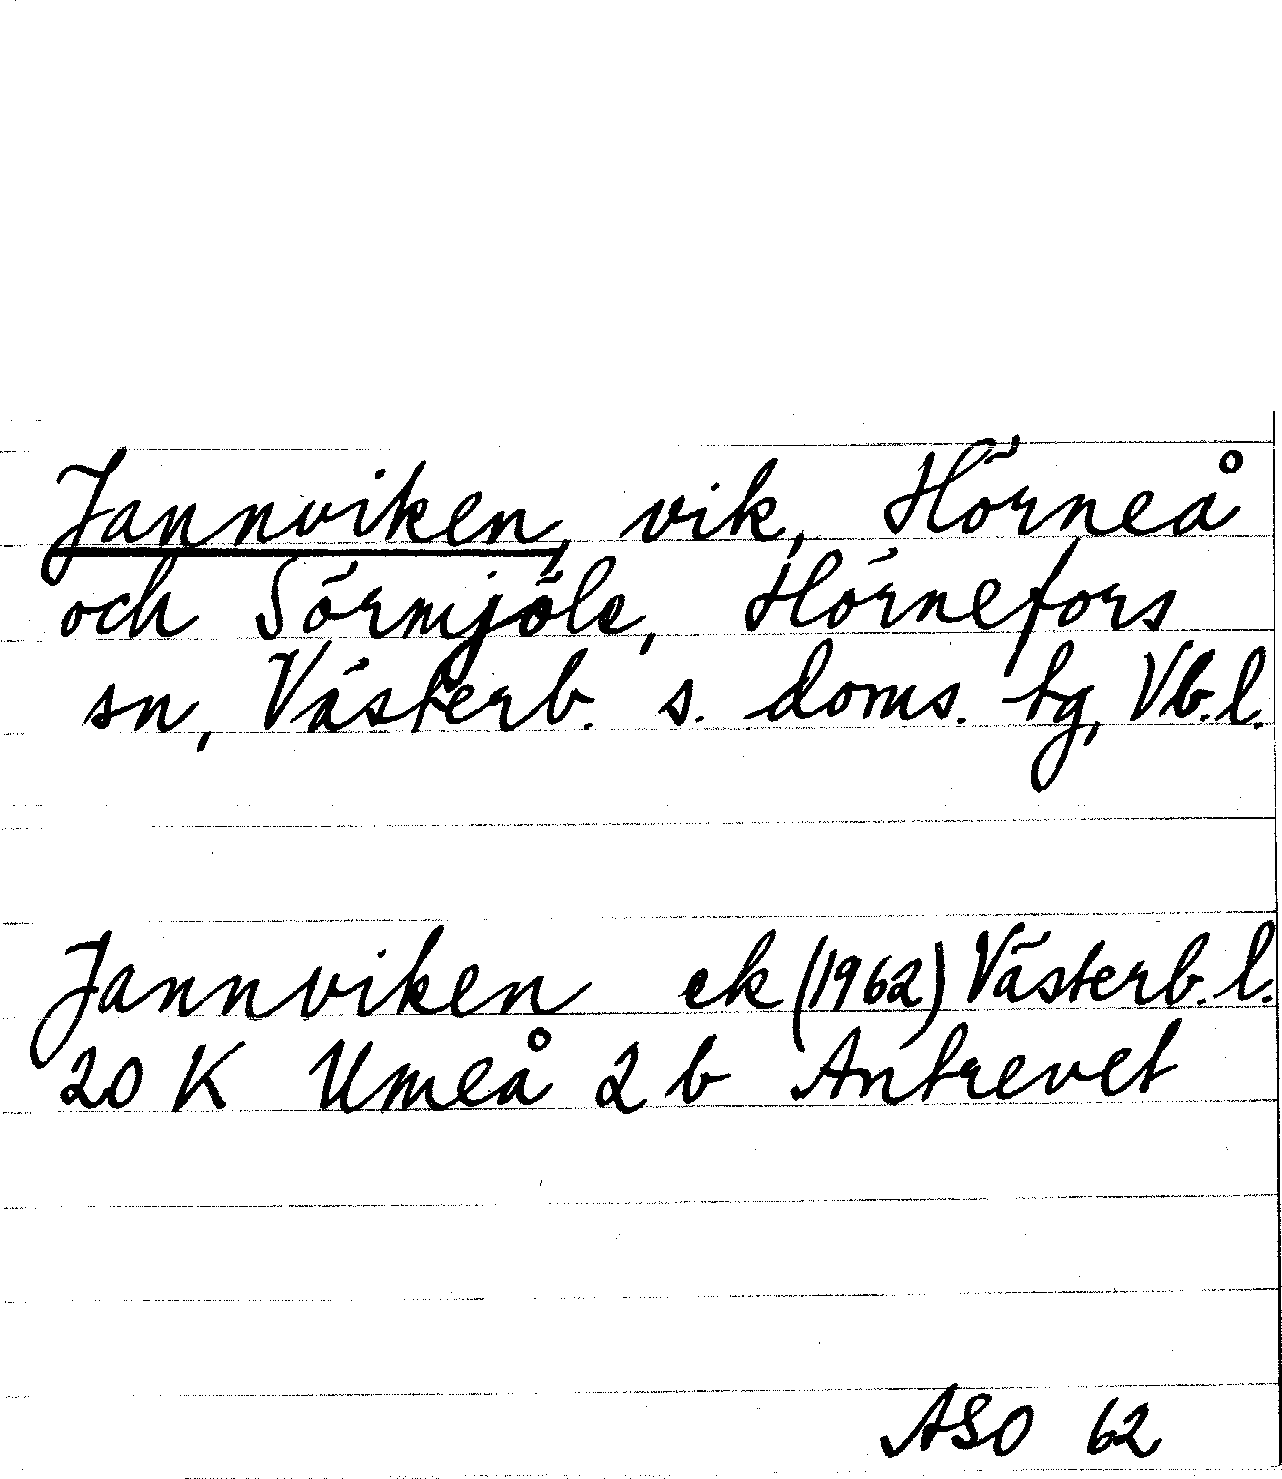 Jannviken, vik, Hörneå
och Sörmjöle, Hörnefors
sn, Västerb. s. doms. tg, Vb.l.
Jannviken ek (1962) Västerb.l.
20 K Umeå 2 b Antrevet
ASO 62